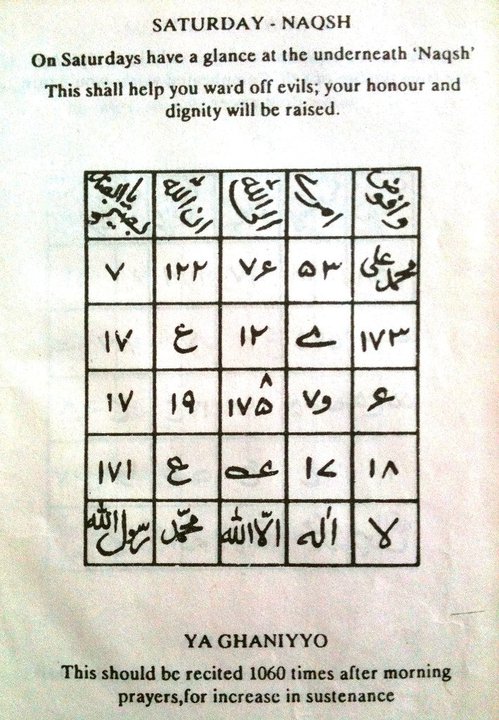 SATURDAY - NAQSH
On Saturdays have a glance at the underneath ‘Naqsh’
This shall help you ward off evils; your honour and
dignity will be raised.
وافوض امری الی الله ان الله بصیر بالعباد
محمد علی ۵۳ ۷۶ ۱۲۲ ۷
۱۷۳ ے ۱۲ ع ۱۷
۶ و۷ ۱۷۵ ۸ ۱۹ ۱۷
۱۸ عے ع ۱۷۱
لا اله الّا الله محمّد رسول الله
YA GHANIYYO
This should be recited 1060 times after morning
prayers,for increase in sustenance